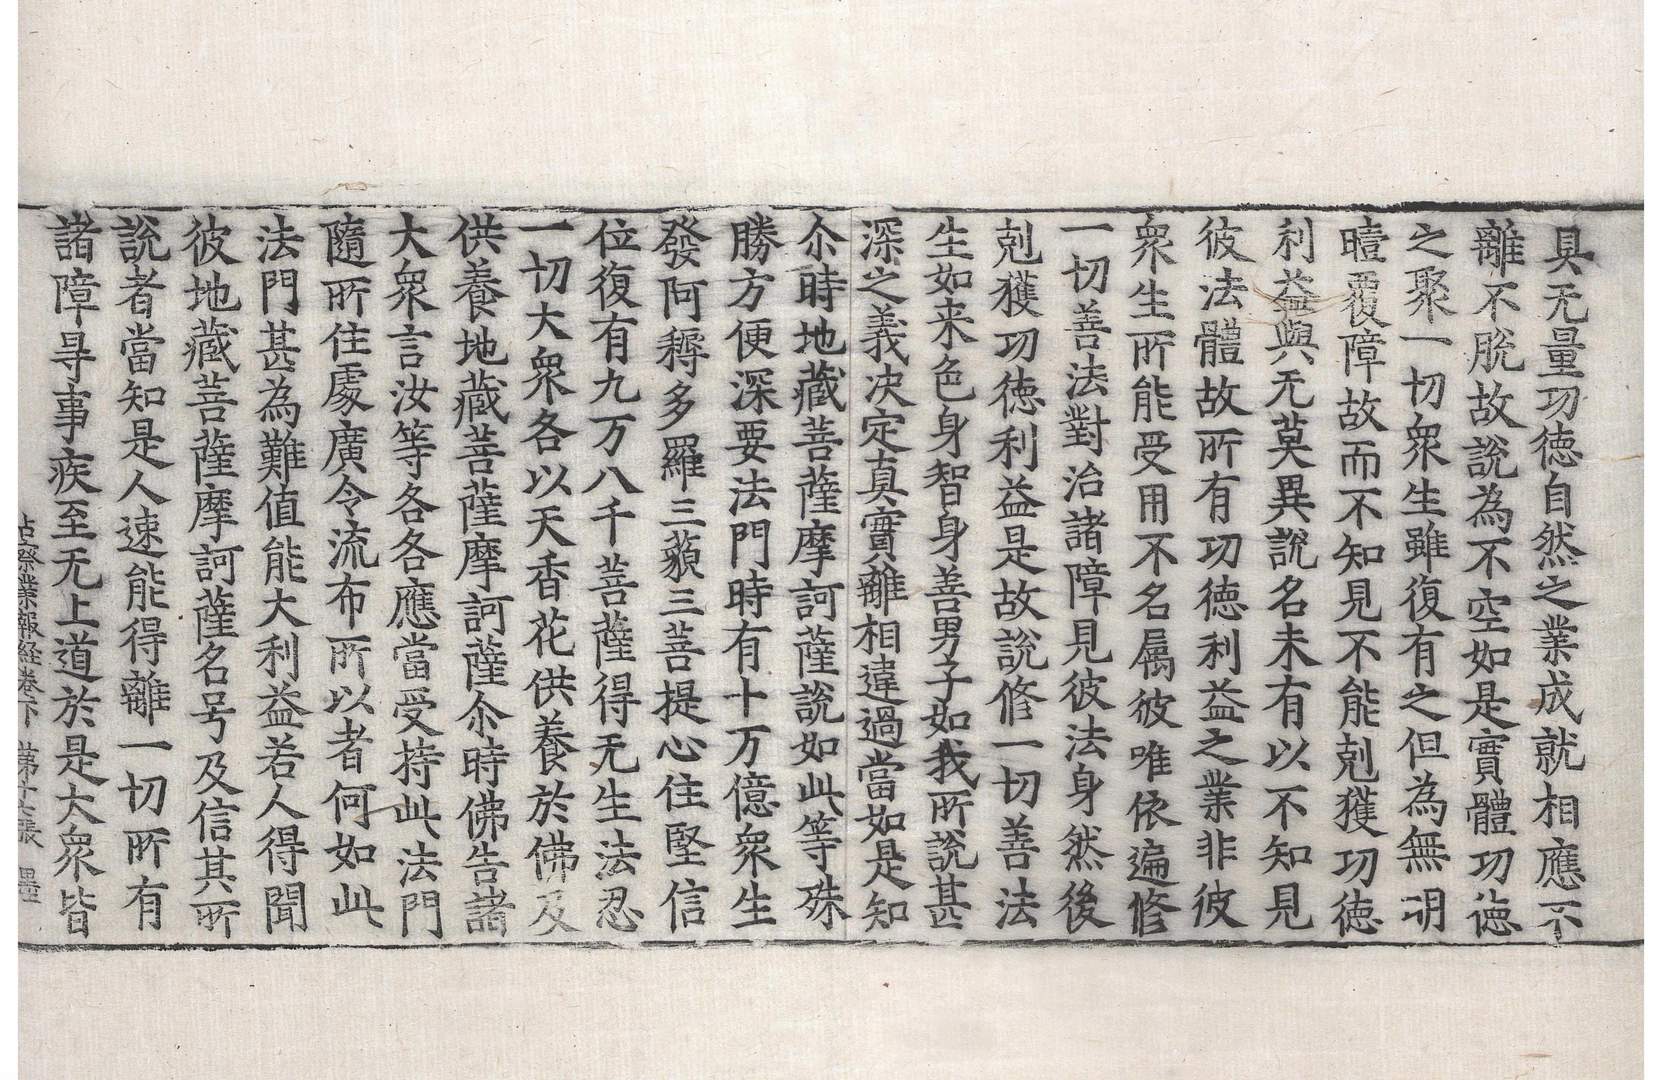 具无量功徳自然之業成就相應不
離不脫故說為不空如是實體功徳
之聚一切衆生雖復有之但為無明
曀覆障故而不知見不能剋獲功徳
利益與无莫異說名未有以不知見
彼法體故所有功徳利益之業非彼
衆生所能受用不名屬彼唯依遍修
一切善法對治諸障見彼法身然後
剋獲功徳利益是故說修一切善法
生如来色身智身善男子如我所說甚
深之義决定真實離相違過當如是知
尒時地藏菩薩摩訶薩說如此等殊
勝方便深要法門時有十万億衆生
發阿耨多羅三藐三菩提心住堅信
位復有九万八千菩薩得无生法忍
一切大衆各以天香花供養於佛及
供養地藏菩薩摩訶薩尒時佛告諸
大衆言汝等各各應當受持此法門
隨所住處廣令流布所以者何如此
法門甚為難值能大利益若人得聞
彼地藏菩薩摩訶薩名号及信其所
說者當知是人速能得離一切所有
諸障㝵事疾至无上道於是大衆皆
占察業報経卷下 第十七張 墨